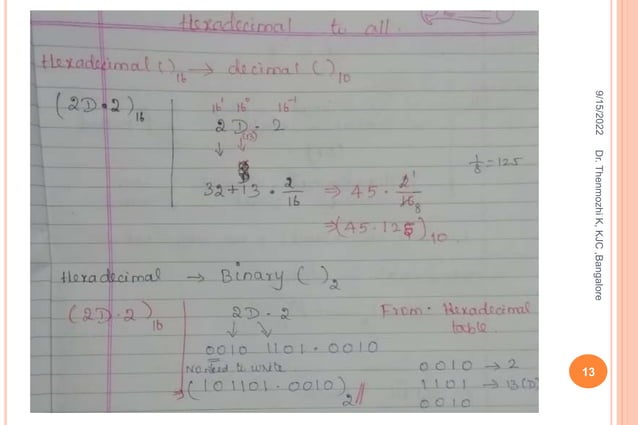 Hexadecimal to all.
Hexadecimal ( )16 → decimal ( )10
(2D.2)16
16^1 16^0 16^-1
2 D . 2
(13)
↓ ↓
32+13 . 2/16 ⇒ 45 . 2^1/16 8
1/8 = 125
⇒(45.125)10
Hexadecimal → Binary ( )2
(2D.2)16
2D.2
↓ ↓
0010 1101.0010
No need to write
⇒(101101.0010)2//
From: Hexadecimal
table.
0010 → 2
1101 → 13(D)
0010
9/15/2022 Dr. Thenmozhi K, KJC ,Bangalore
13